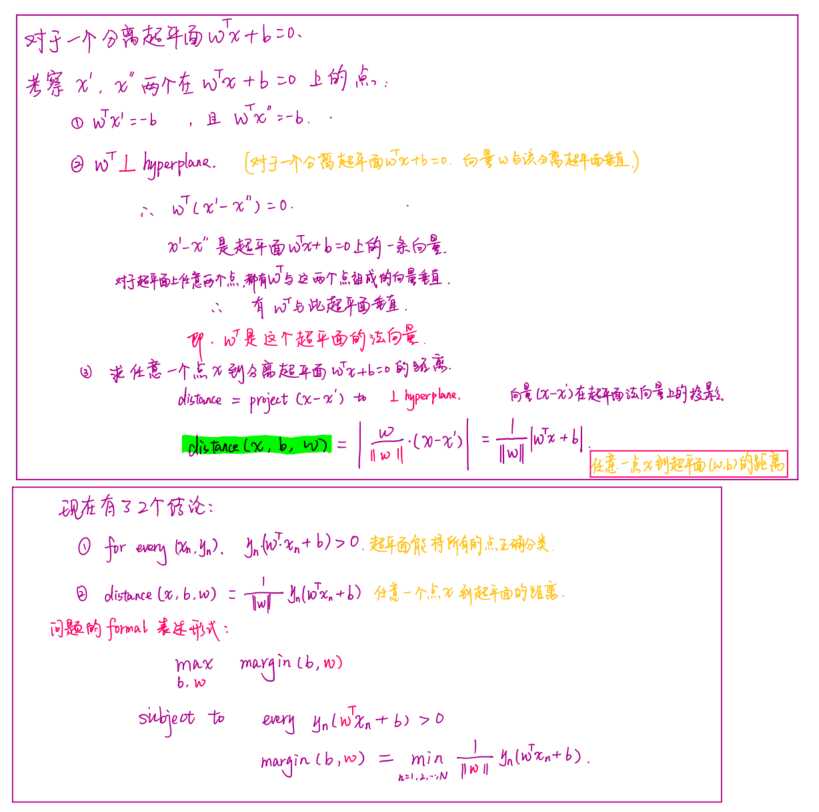 对于一个分离超平面 wᵀx+b=0.
考察 x', x'' 两个在 wᵀx+b=0 上的点.:
① wᵀx'=-b , 且 wᵀx''=-b.
② wᵀ ⊥ hyperplane. (对于一个分离超平面wᵀx+b=0. 向量w与该分离超平面垂直.)
∴ wᵀ(x'-x'')=0.
x'-x'' 是超平面 wᵀx+b=0上的一条向量.
对于超平面上任意两个点,都有wᵀ与这两个点组成的向量垂直.
∴ 有 wᵀ与此超平面垂直.
即. wᵀ是这个超平面的法向量.
③ 求任意一个点x到分离超平面wᵀx+b=0的距离.
distance = project (x-x') to ⊥ hyperplane. 向量(x-x')在超平面法向量上的投影.
distance(x, b, w) = | w/‖w‖ ·(x-x')| = 1/‖w‖ |wᵀx+b|.
任意一点x到超平面(w,b)的距离
现在有了2个结论:
① for every (xₙ,yₙ), yₙ(wᵀ·xₙ+b)>0. 超平面能将所有的点正确分类.
② distance(x,b,w) = 1/‖w‖ yₙ(wᵀxₙ+b) 任意一个点x到超平面的距离.
问题的 formal 表述形式:
max b,w margin(b,w)
subject to every yₙ(wᵀxₙ+b)>0
margin(b,w) = min n=1,2,...,N 1/‖w‖ yₙ(wᵀxₙ+b).